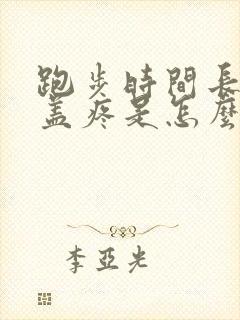 跑步時間長
蓋疼是怎麼
李亞光